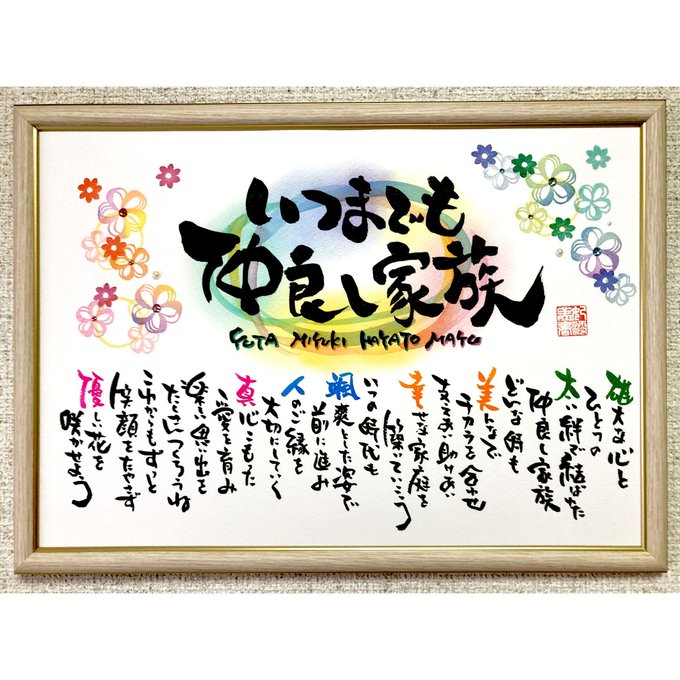 いつまでも
仲良し家族
YUTA MIYUKI HAYATO MAYU
雄大な心と
ひとつの
太い絆で結ばれた
仲良し家族
どんな時も
美んなで
チカラを合わせ
支えあい助けあい
幸せな家庭を
築いていこう
いつの時代も
颯爽とした姿で
前に進み
人のご縁を
大切にしていく
真心こもった
愛を育み
楽しい思い出を
たくさんつくろうね
これからもずっと
笑顔をたやさず
優しい花を
咲かせよう